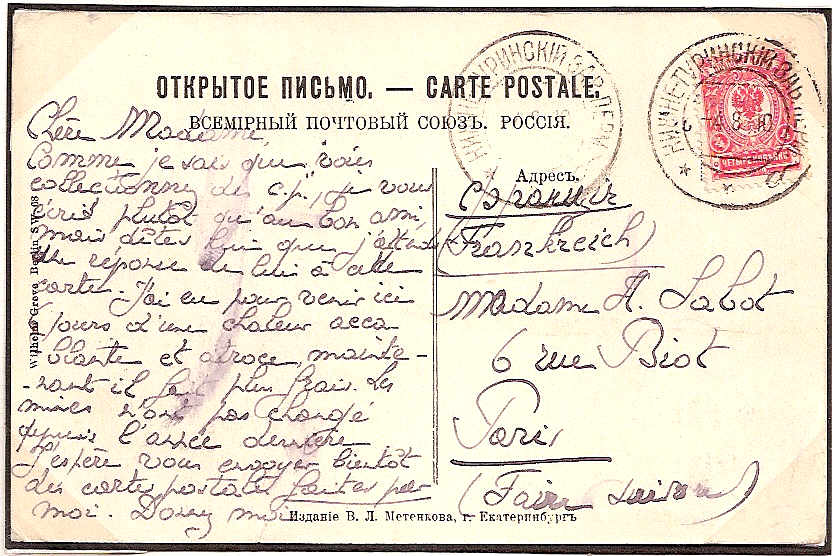 ОТКРЫТОЕ ПИСЬМО. — CARTE POSTALE.
ВСЕМІРНЫЙ ПОЧТОВЫЙ СОЮЗЪ. РОССІЯ.
Chère Madame,
Comme je sais que vous
collectionnez des c.p., je vous
écris plutôt qu'au bon ami,
mais dites lui que j'attends
une réponse de lui à cette
carte. J'ai eu pour venir ici
jours d'une chaleur acca
blante et atroce, mainte-
-nant il fait plus frais. Les
mines n'ont pas changé
depuis l'année dernière.
J'espère vous envoyer bientôt
des cartes postales faites par
moi.
Адресъ.
Франція
(Frankreich)
Madame A. Labot
6 rue Biot
Paris
(Faire suivre)
Wilhelm Greve, Berlin SW. 68
Изданіе В. Л. Метенкова, г. Екатеринбургъ